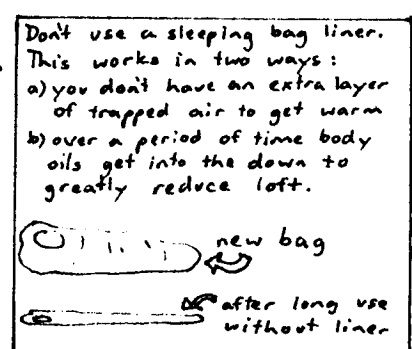 Don't use a sleeping bag liner.
This works in two ways:
a) you don't have an extra layer
of trapped air to get warm
b) over a period of time body
oils get into the down to
greatly reduce loft.
new bag
after long use
without liner